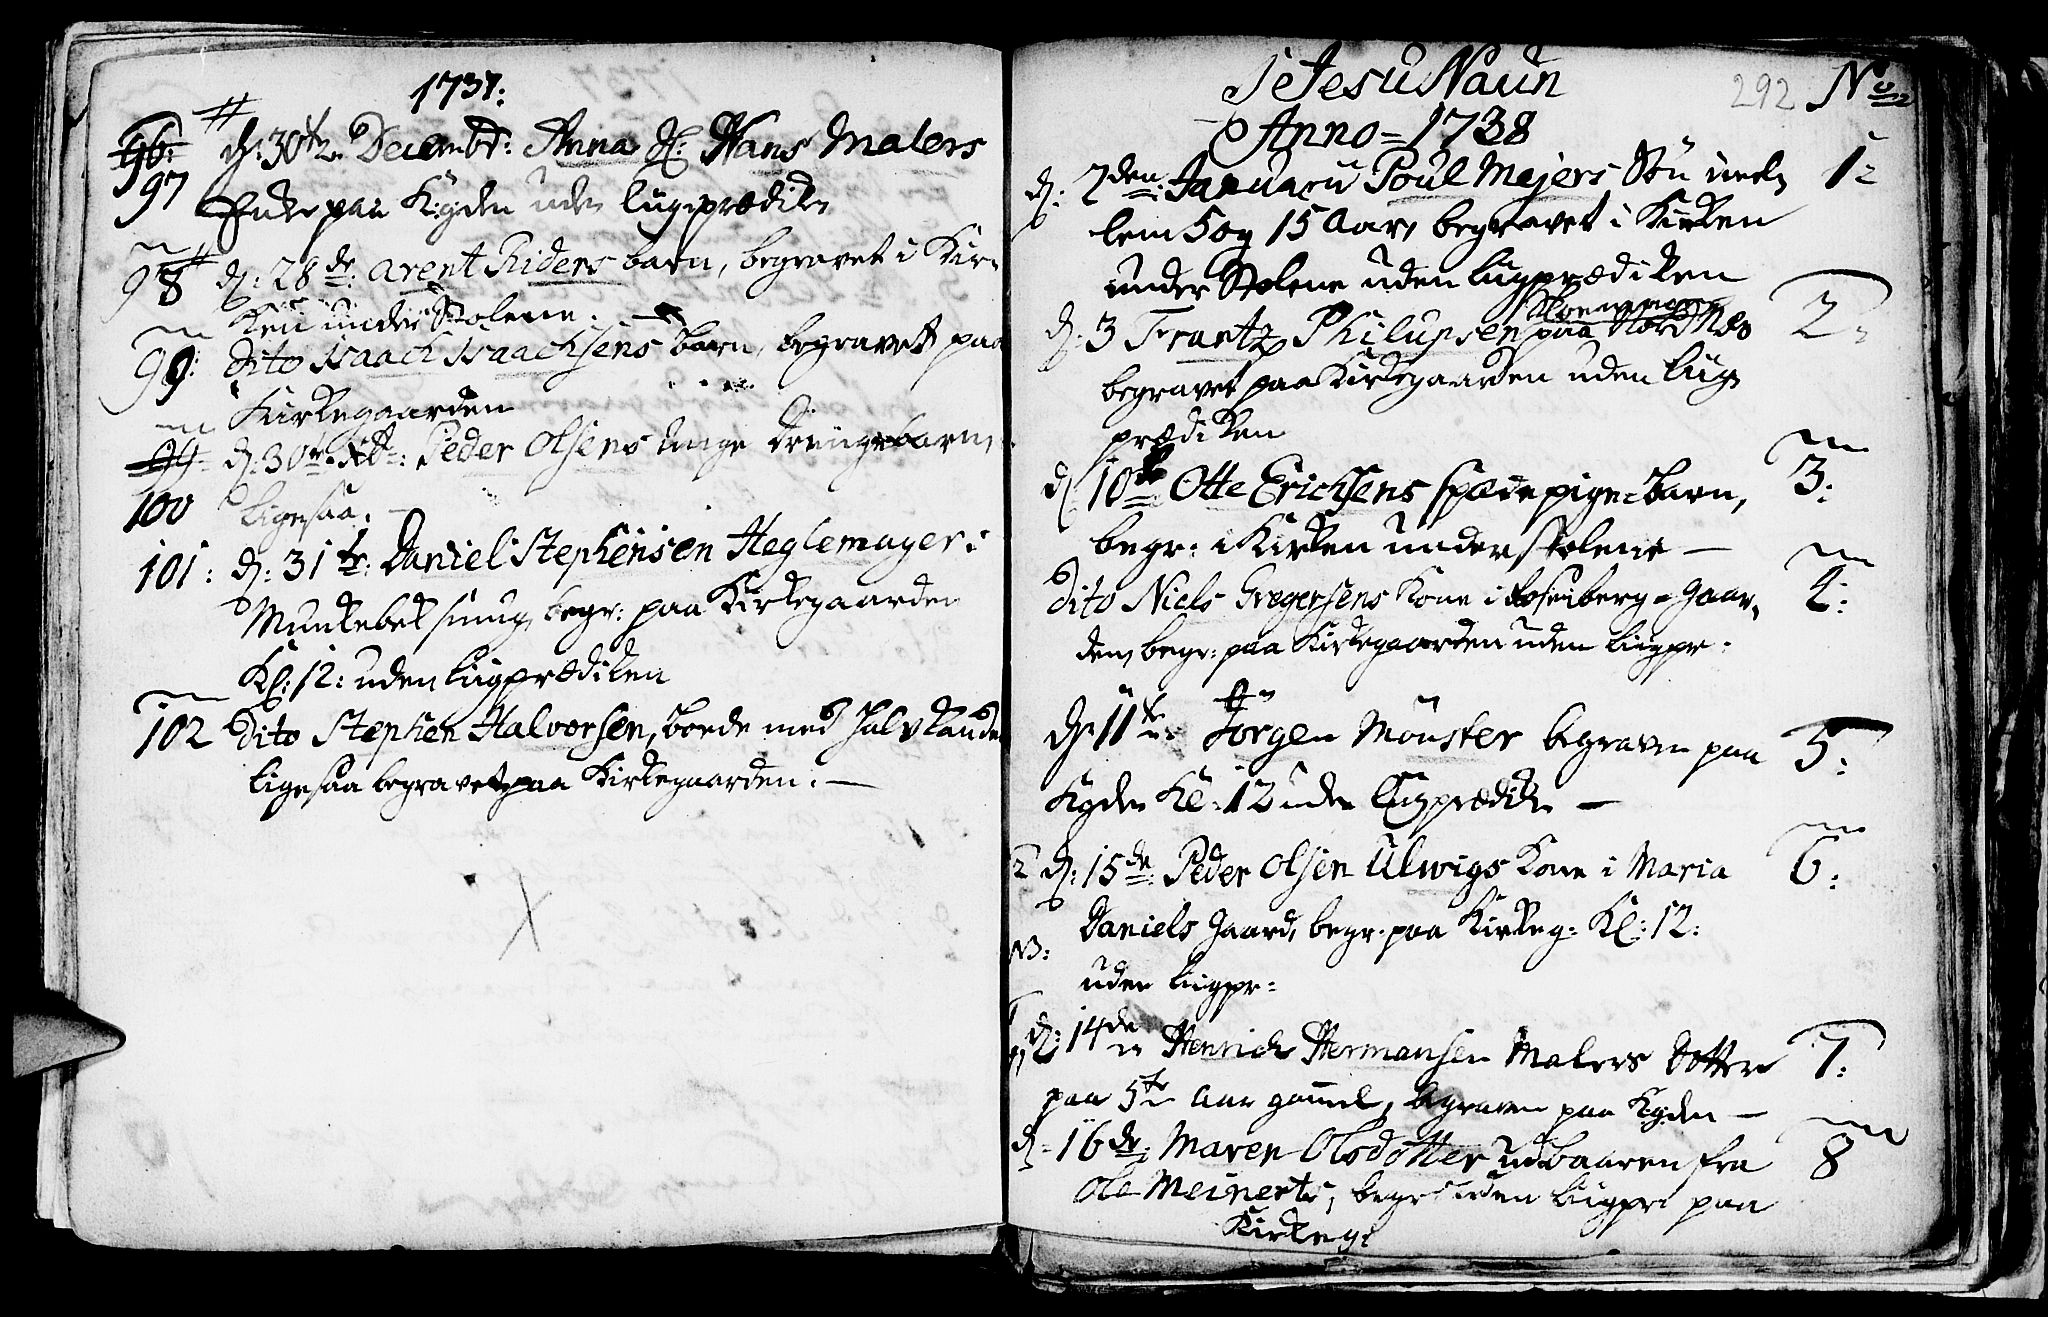 1737:
96: d: 30te Decembr: Anna Sl: Hans Malers
97 Enke paa Kgden uden liigprædiken
98 d: 28de: Arent Riders barn, begravet i Kir-
ken under Stolene.
99: dito Isaach Isaachsens barn, begravet paa
Kirkegaarden
99 d: 30te Xbr: Peder Olsens unge drengebarn,
100 Ligesaa.
101: d: 31te: Daniel Stephensen Heglemager i
begr: paa Kirkegaarden
Kl: 12: uden liigprædiken
102 dito Stephen Halvorsen, boede med
ligesaa begravet paa Kirkegaarden: —
I Jesu Naun
292 No
Anno = 1738
d: 2den: Januarii Poul Mejers 1:
15 Aar, begravet i Kirken
under Stolene uden liigprædiken
d: 3 Frantz Philipsen paa Nordnes 2:
begravet paa Kirkegaarden uden liig-
prædiken
d: 10de Otte Erichsens spæde pige-barn, 3:
begr: i Kirken under stolene —
dito Niels Gregersens Kone i Rosenberg-gaar- 4:
den, begr: paa Kirkegaarden uden liigpr:
d: 11te Jörgen Mönster begraven paa 5:
Kgden Kl: 12 uden liigprædik —
d: 15de: Peder Olsen Ulwigs Kone i Maria 6:
Daniels gaard, begr. paa Kirkeg: Kl: 12:
uden liigpr:
d: 14de Henrich Hermansen Malers dotter 7:
paa 5te Aar gammel, begraven paa Kgden —
d: 16de: Maren Olsdotter udbaaren fra 8
Ole Meinerts, begr: uden liigpr: paa
Kirkeg: